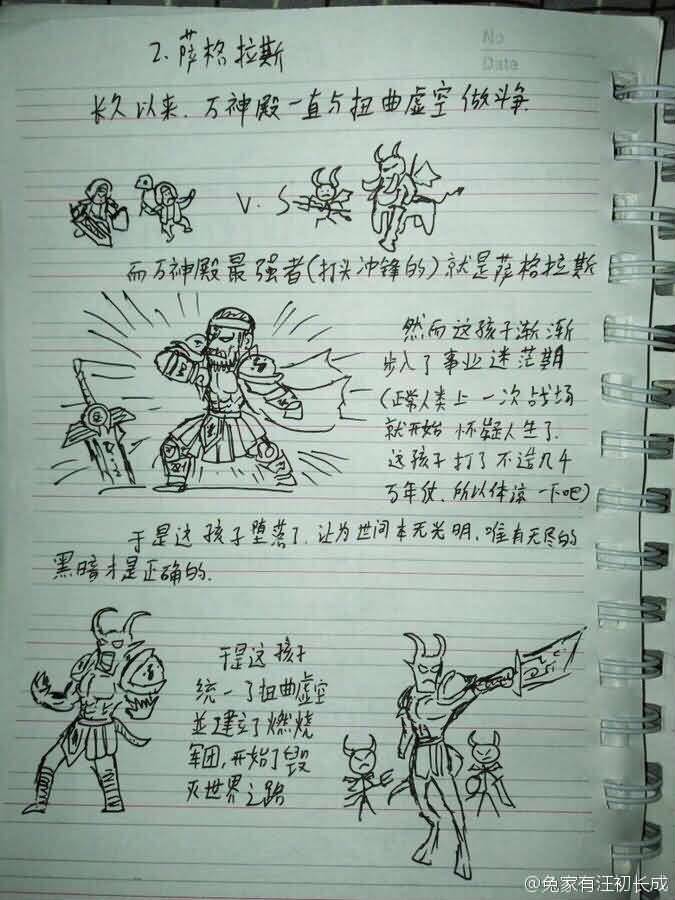 No
Date
2. 萨格拉斯
长久以来，万神殿一直与扭曲虚空做斗争
V.S
而万神殿最强者(打头冲锋的)就是萨格拉斯
然而这孩子渐渐
步入了事业迷茫期
(正常人类上一次战场
就开始怀疑人生了.
这孩子打了不造几千
万年仗，所以体谅一下吧)
于是这孩子堕落了，认为世间本无光明，唯有无尽的
黑暗才是正确的.
于是这孩子
统一了扭曲虚空
並建立了燃烧
军团，开始了毁
灭世界之路
@兔家有汪初长成